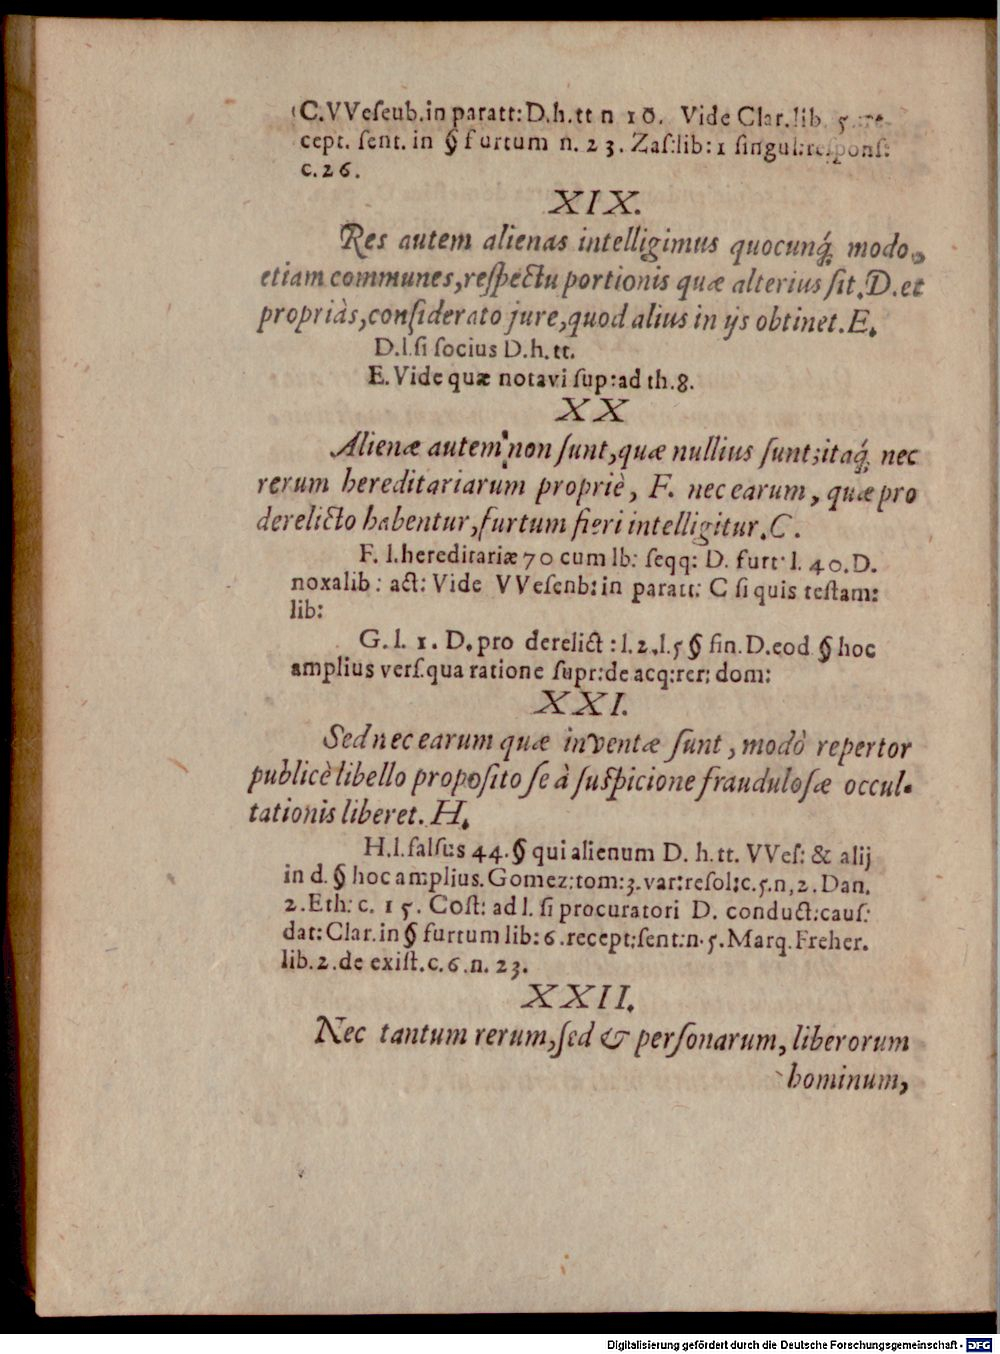 C. VVeſeub. in paratt: D. h. tt n 10. Vide Clar. lib. 5. re-
cept. ſent. in § furtum n. 23. Zaſ: lib: 1 ſingul: reſponſ:
c. 26.
XIX.
Res autem alienas intelligimus quocunq́; modo,
etiam communes, reſpectu portionis quæ alterius ſit. D. et
propriàs, conſiderato jure, quod alius in ijs obtinet. E.
D. l. ſi ſocius D. h. tt.
E. Vide quæ notavi ſup: ad th. 8.
XX
Alienæ autem non ſunt, quæ nullius ſunt; itaq́; nec
rerum hereditariarum propriè, F. nec earum, quæ pro
derelicto habentur, furtum fieri intelligitur. C.
F. l. hereditariæ 70 cum lb: ſeqq: D. furt: l. 40. D.
noxalib: act: Vide VVeſenb: in paratt: C ſi quis teſtam:
lib:
G. l. 1. D. pro derelict: l. 2. l. 5 § fin. D. eod § hoc
amplius verſ. qua ratione ſupr: de acq: rer: dom:
XXI.
Sed nec earum quæ inventæ ſunt, modò repertor
publicè libello propoſito ſe à ſuſpicione frauduloſæ occul-
tationis liberet. H.
H. l. falſus 44. § qui alienum D. h. tt. VVeſ: & alij
in d. § hoc amplius. Gomez: tom: 3. var: reſol: c. 5. n, 2. Dan.
2. Eth: c. 15. Coſt: ad l. ſi procuratori D. conduct: cauſ:
dat: Clar. in § furtum lib: 6. recept: ſent: n. 5. Marq. Freher.
lib. 2. de exiſt. c. 6. n. 23.
XXII.
Nec tantum rerum, ſed & perſonarum, liberorum
hominum,
Digitalisierung gefördert durch die Deutsche Forschungsgemeinschaft - DFG